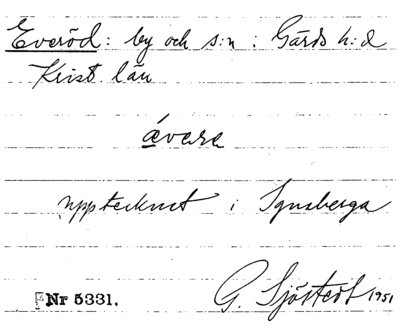 Everöd: by och s:n i Gärds h:d
Krist. län
ávara
upptecknat i Ignaberga
G. Sjöstedt 1951
Nr 5331.